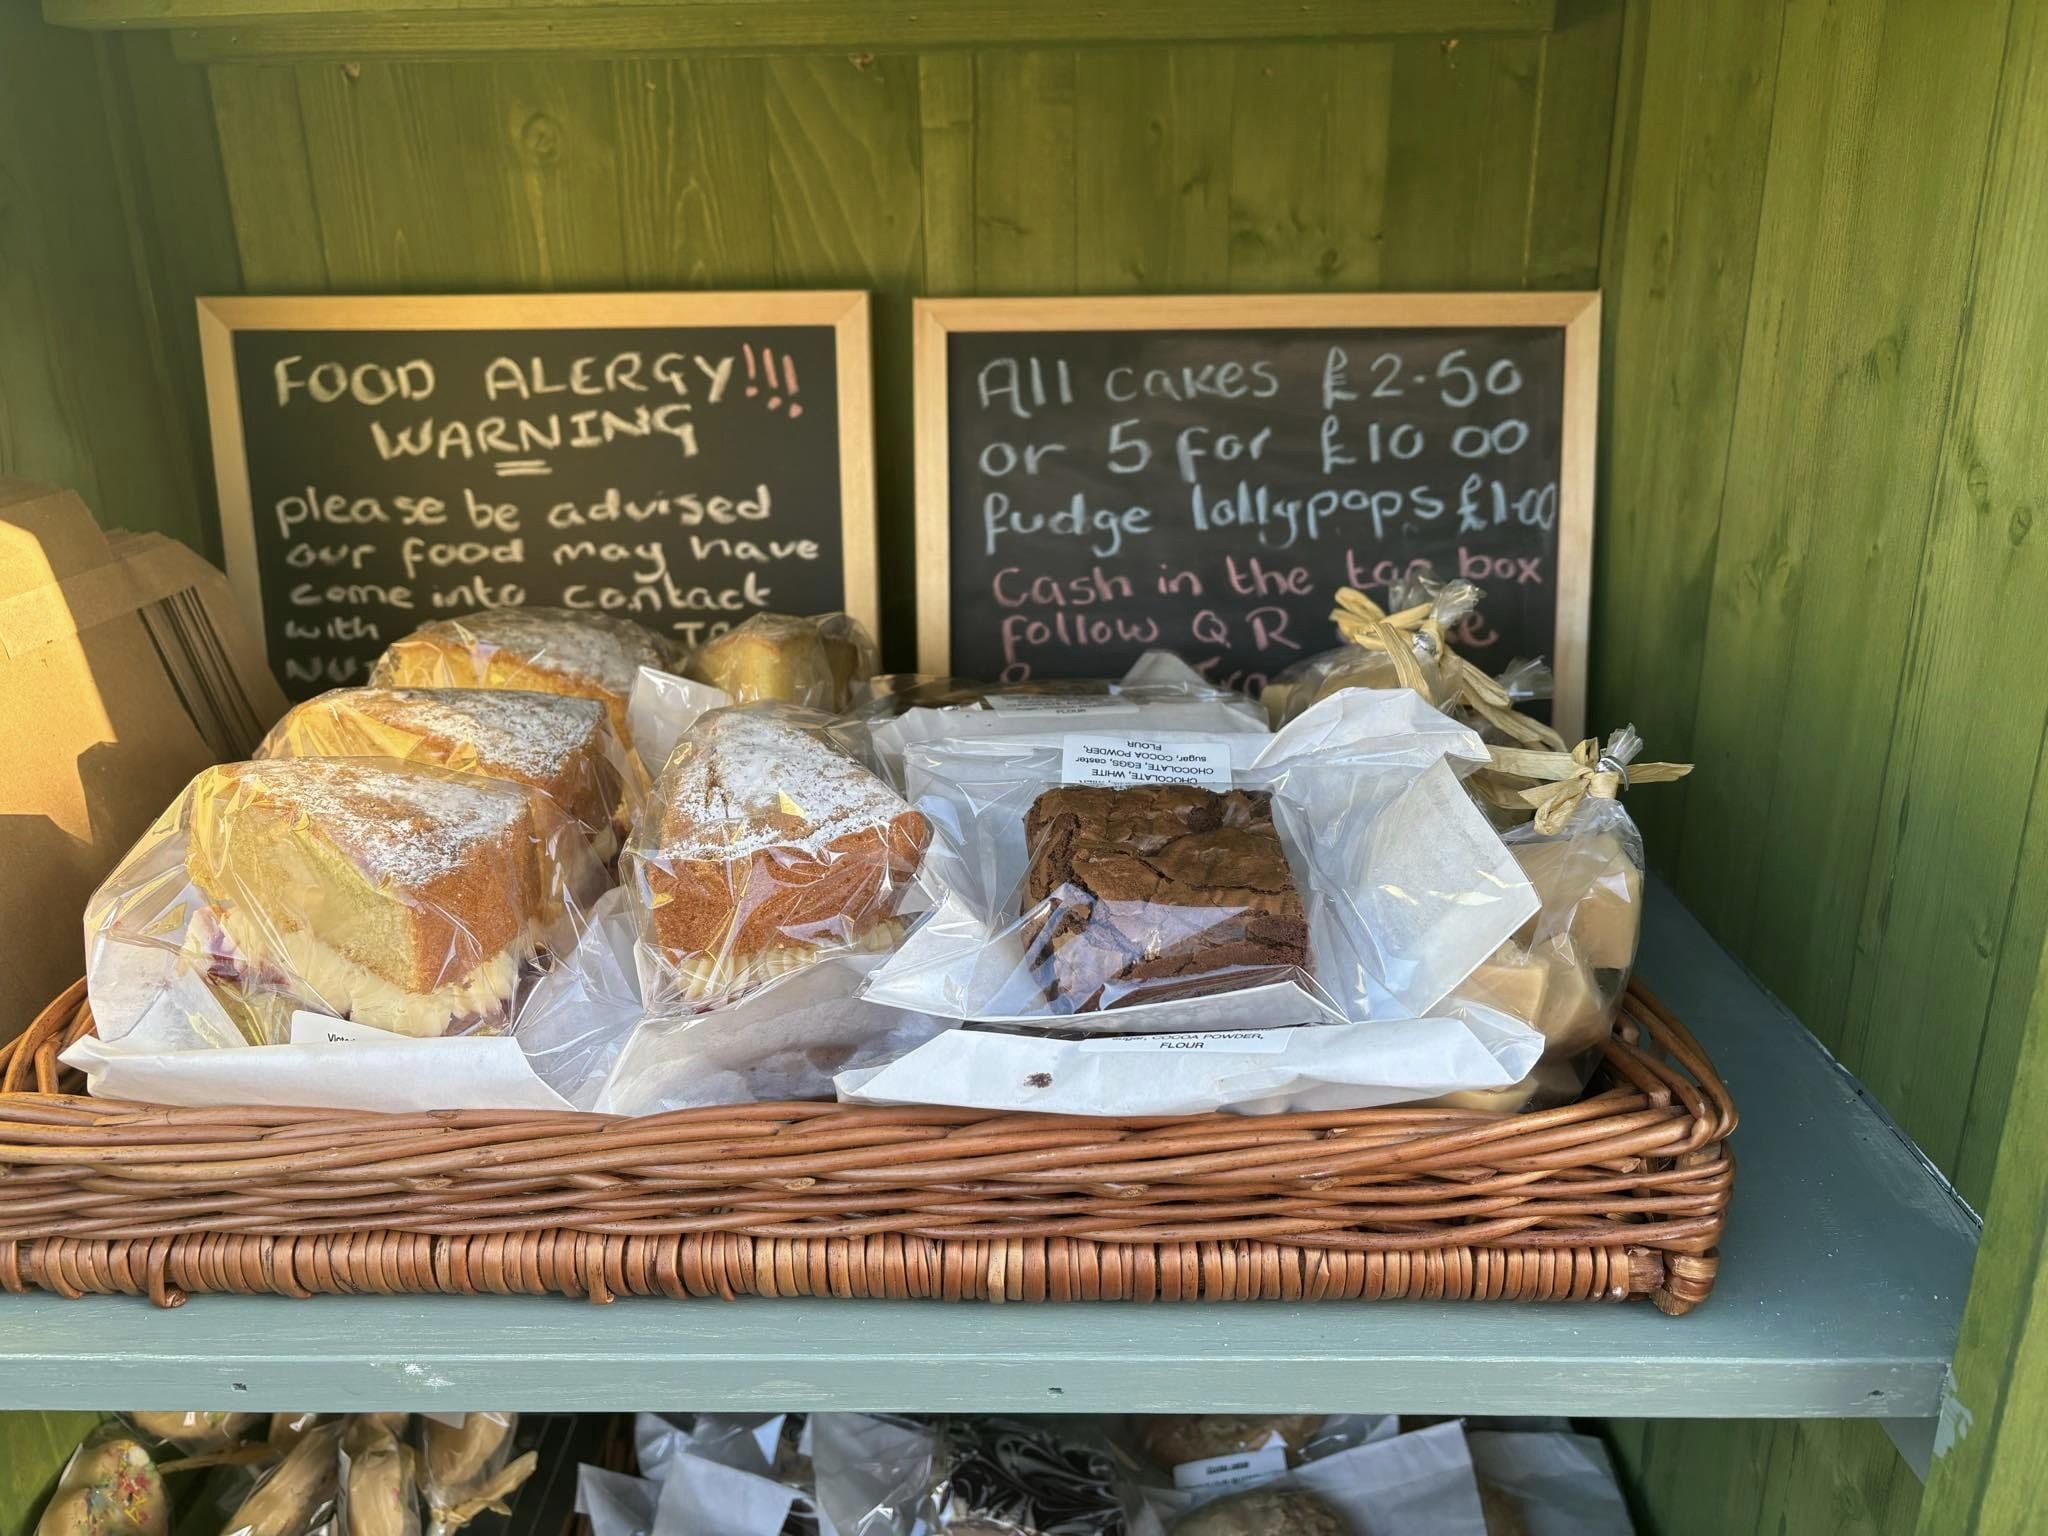 FOOD ALERGY!!!
WARNING
please be advised
our food may have
come into contact
with
All cakes £2.50
or 5 for £10 00
fudge lollypops £1.00
Cash in the
box
follow QR
CHOCOLATE, WHITE
CHOCOLATE, EGGS, caster
sugar, COCOA POWDER,
FLOUR
sugar, COCOA POWDER,
FLOUR